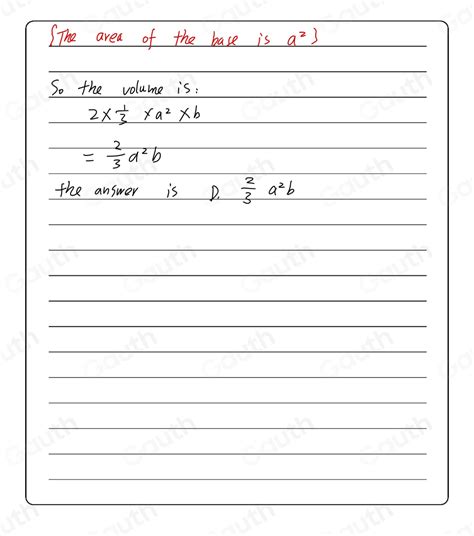 {The area of the base is a²}
So the volume is:
2×1/3 ×a² ×b
= 2/3 a²b
the answer is D. 2/3 a²b